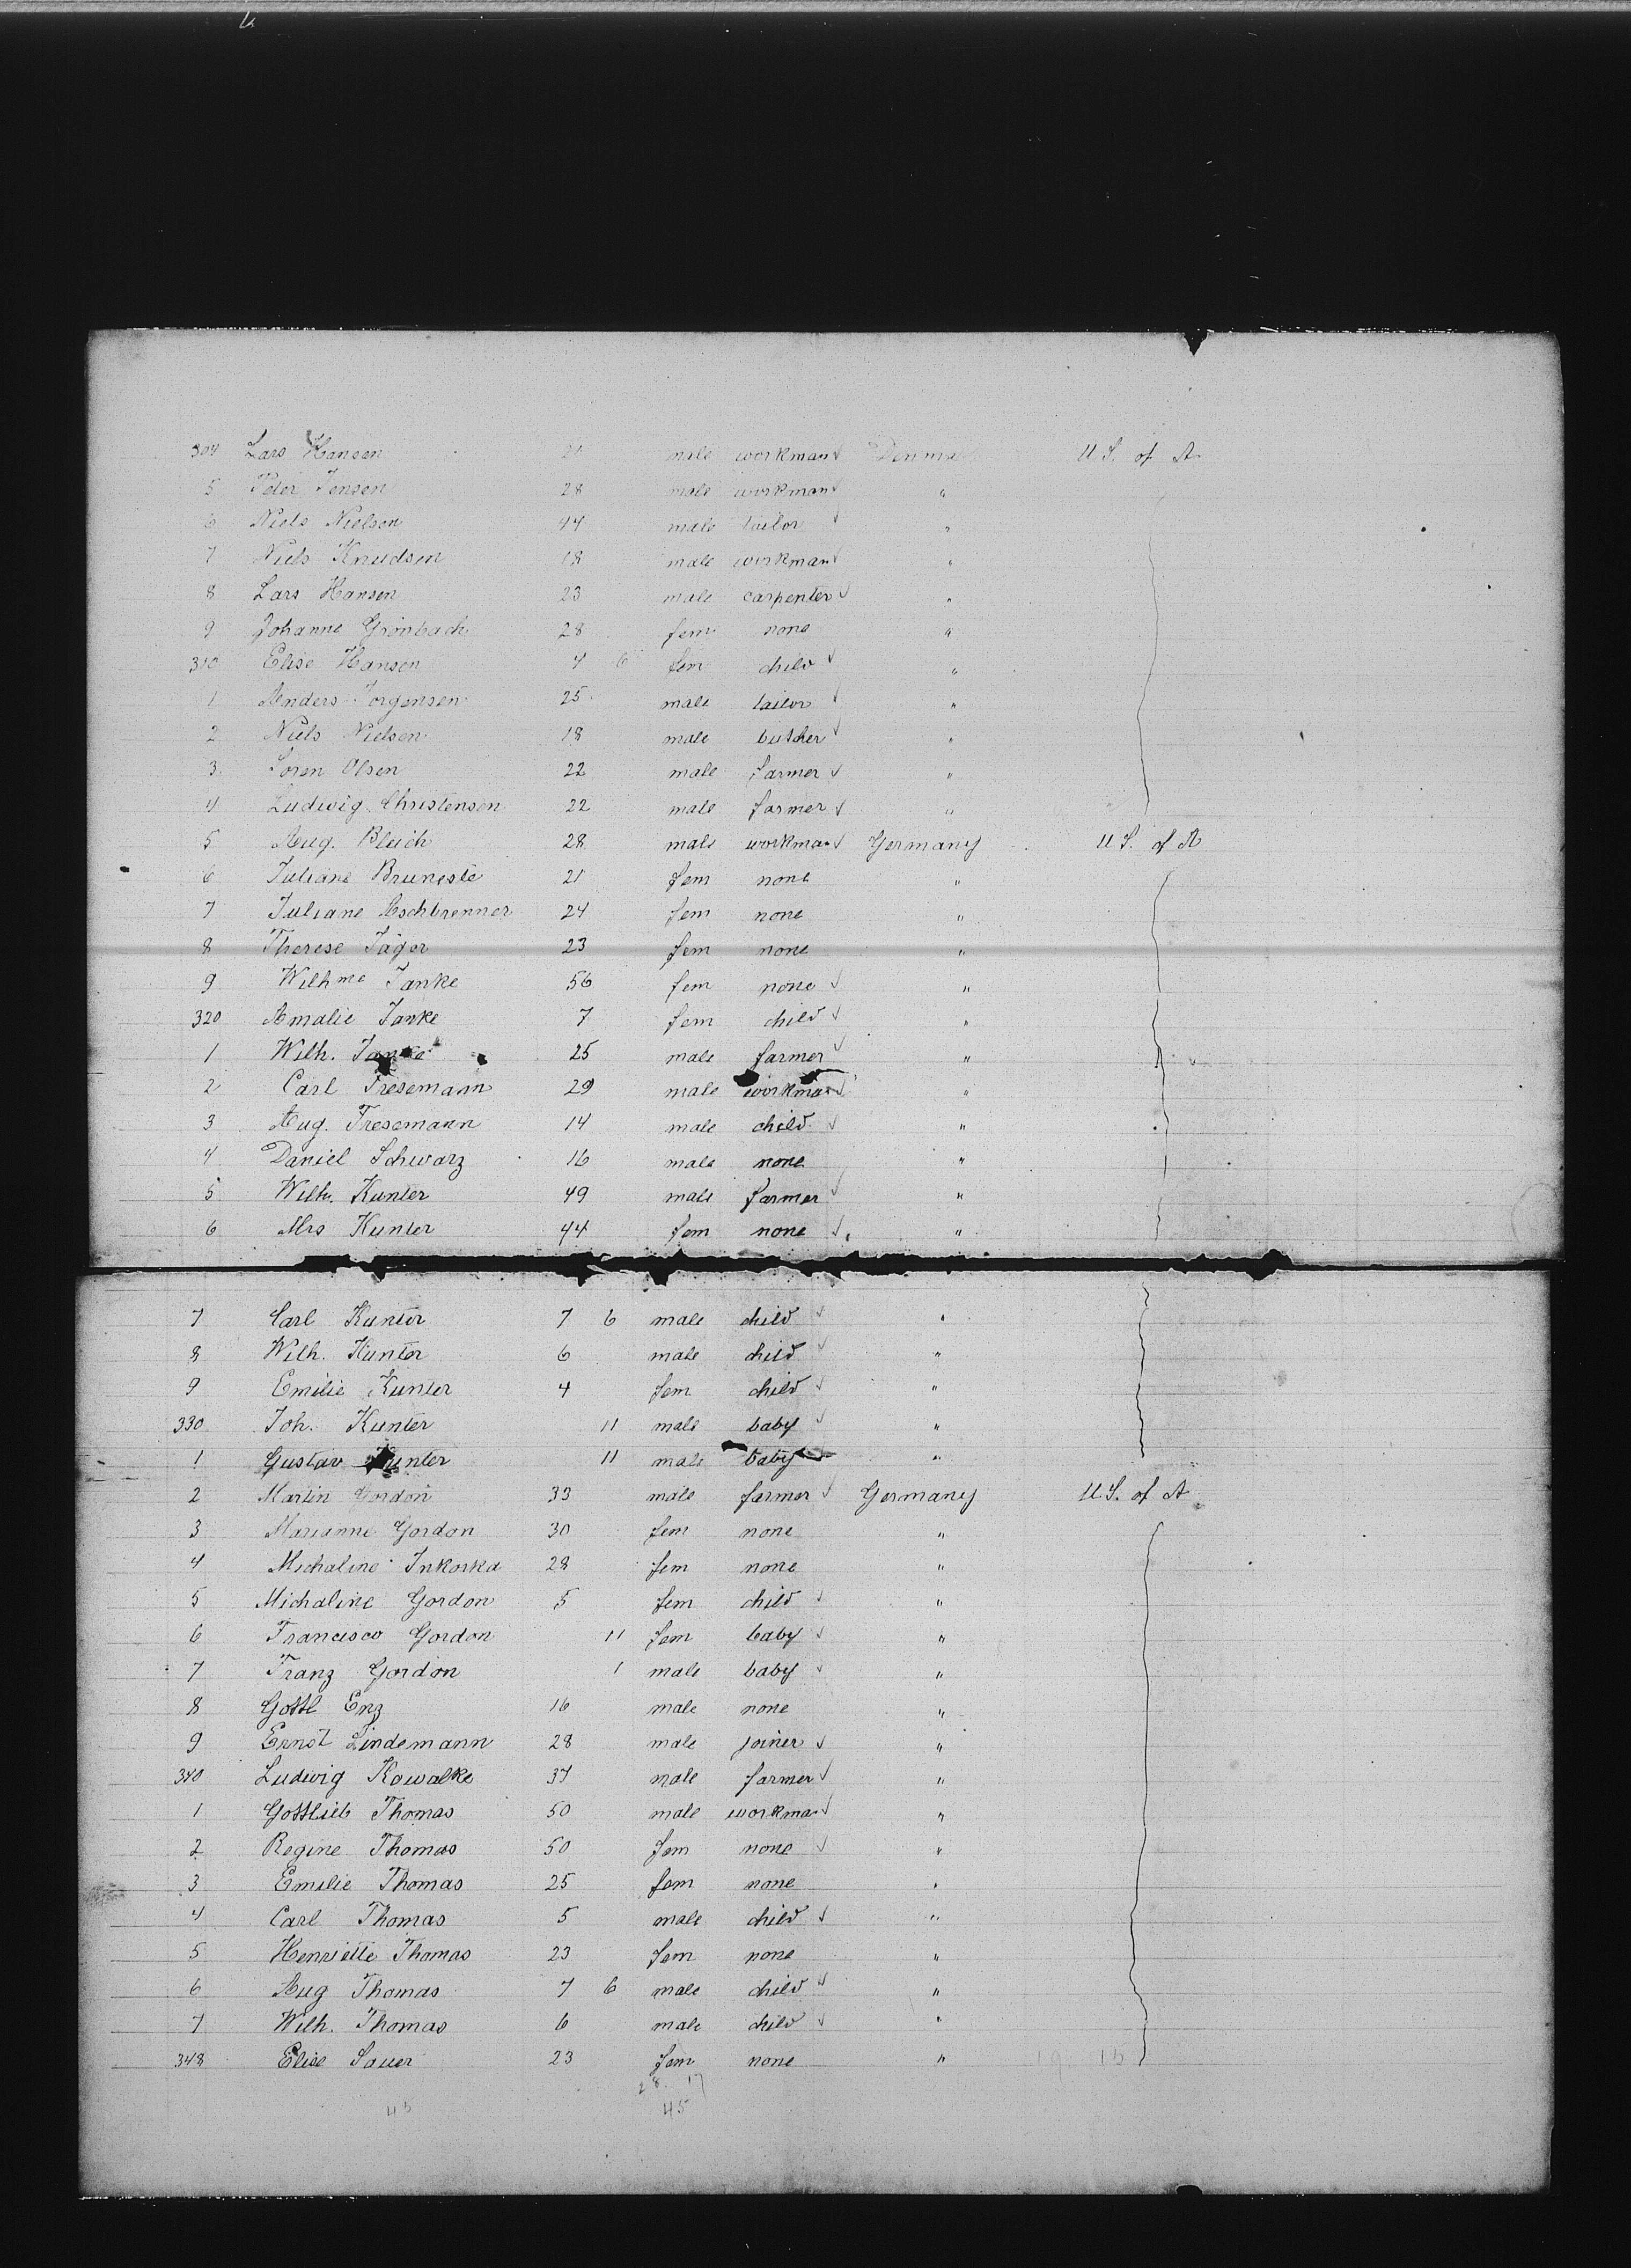 304 Lars Hansen 21 male workman Denma U.S. of A.
5 Peter Jensen 28 male workman "
6 Niels Nielsen 44 male tailor "
7 Niels Knudsen 18 male workman "
8 Lars Hansen 23 male carpenter "
9 Johanne Grönbach 28 fem none "
310 Elise Hansen 4 6 fem child "
1 Anders Jorgensen 25 male tailor "
2 Niels Nielsen 18 male butcher "
3 Soren Olsen 22 male farmer "
4 Ludwig Christensen 22 male farmer "
5 Aug. Bleich 28 male workman Germany U.S. of A
6 Juliane 21 fem none "
7 Juliane Eschbrenner 24 fem none "
8 Therese Jäger 23 fem none "
9 Wilhme Janke 56 fem none "
320 Amalie Janke 7 fem child "
1 Wilh. Janke 25 male farmer "
2 Carl Tresemann 29 male workman "
3 Aug. Tresemann 14 male child "
4 Daniel Schwarz 16 male none "
5 Wilh. Kunter 49 male farmer "
6 Mrs Kunter 44 fem none "
7 Carl Kunter 7 6 male child "
8 Wilh. Kunter 6 male child "
9 Emilie Kunter 4 fem child "
330 Joh. Kunter 11 male baby "
1 Gustav Kunter 11 male baby "
2 Martin Gordon 33 male farmer Germany U.S. of A
3 Marianne Gordon 30 fem none "
4 Michaline Inkorka 28 fem none "
5 Michaline Gordon 5 fem child "
6 Francisco Gordon 11 fem baby "
7 Franz Gordon 1 male baby "
8 Gottl Enz 16 male none "
9 Ernst Lindemann 28 male joiner "
340 Ludwig Kowalke 37 male farmer "
1 Gottlieb Thomas 50 male workman "
2 Regine Thomas 50 fem none "
3 Emilie Thomas 25 fem none "
4 Carl Thomas 5 male child "
5 Henriette Thomas 23 fem none "
6 Aug Thomas 7 6 male child "
7 Wilh. Thomas 6 male child "
348 Elise Sauer 23 fem none " 19 15
28 17
45 45